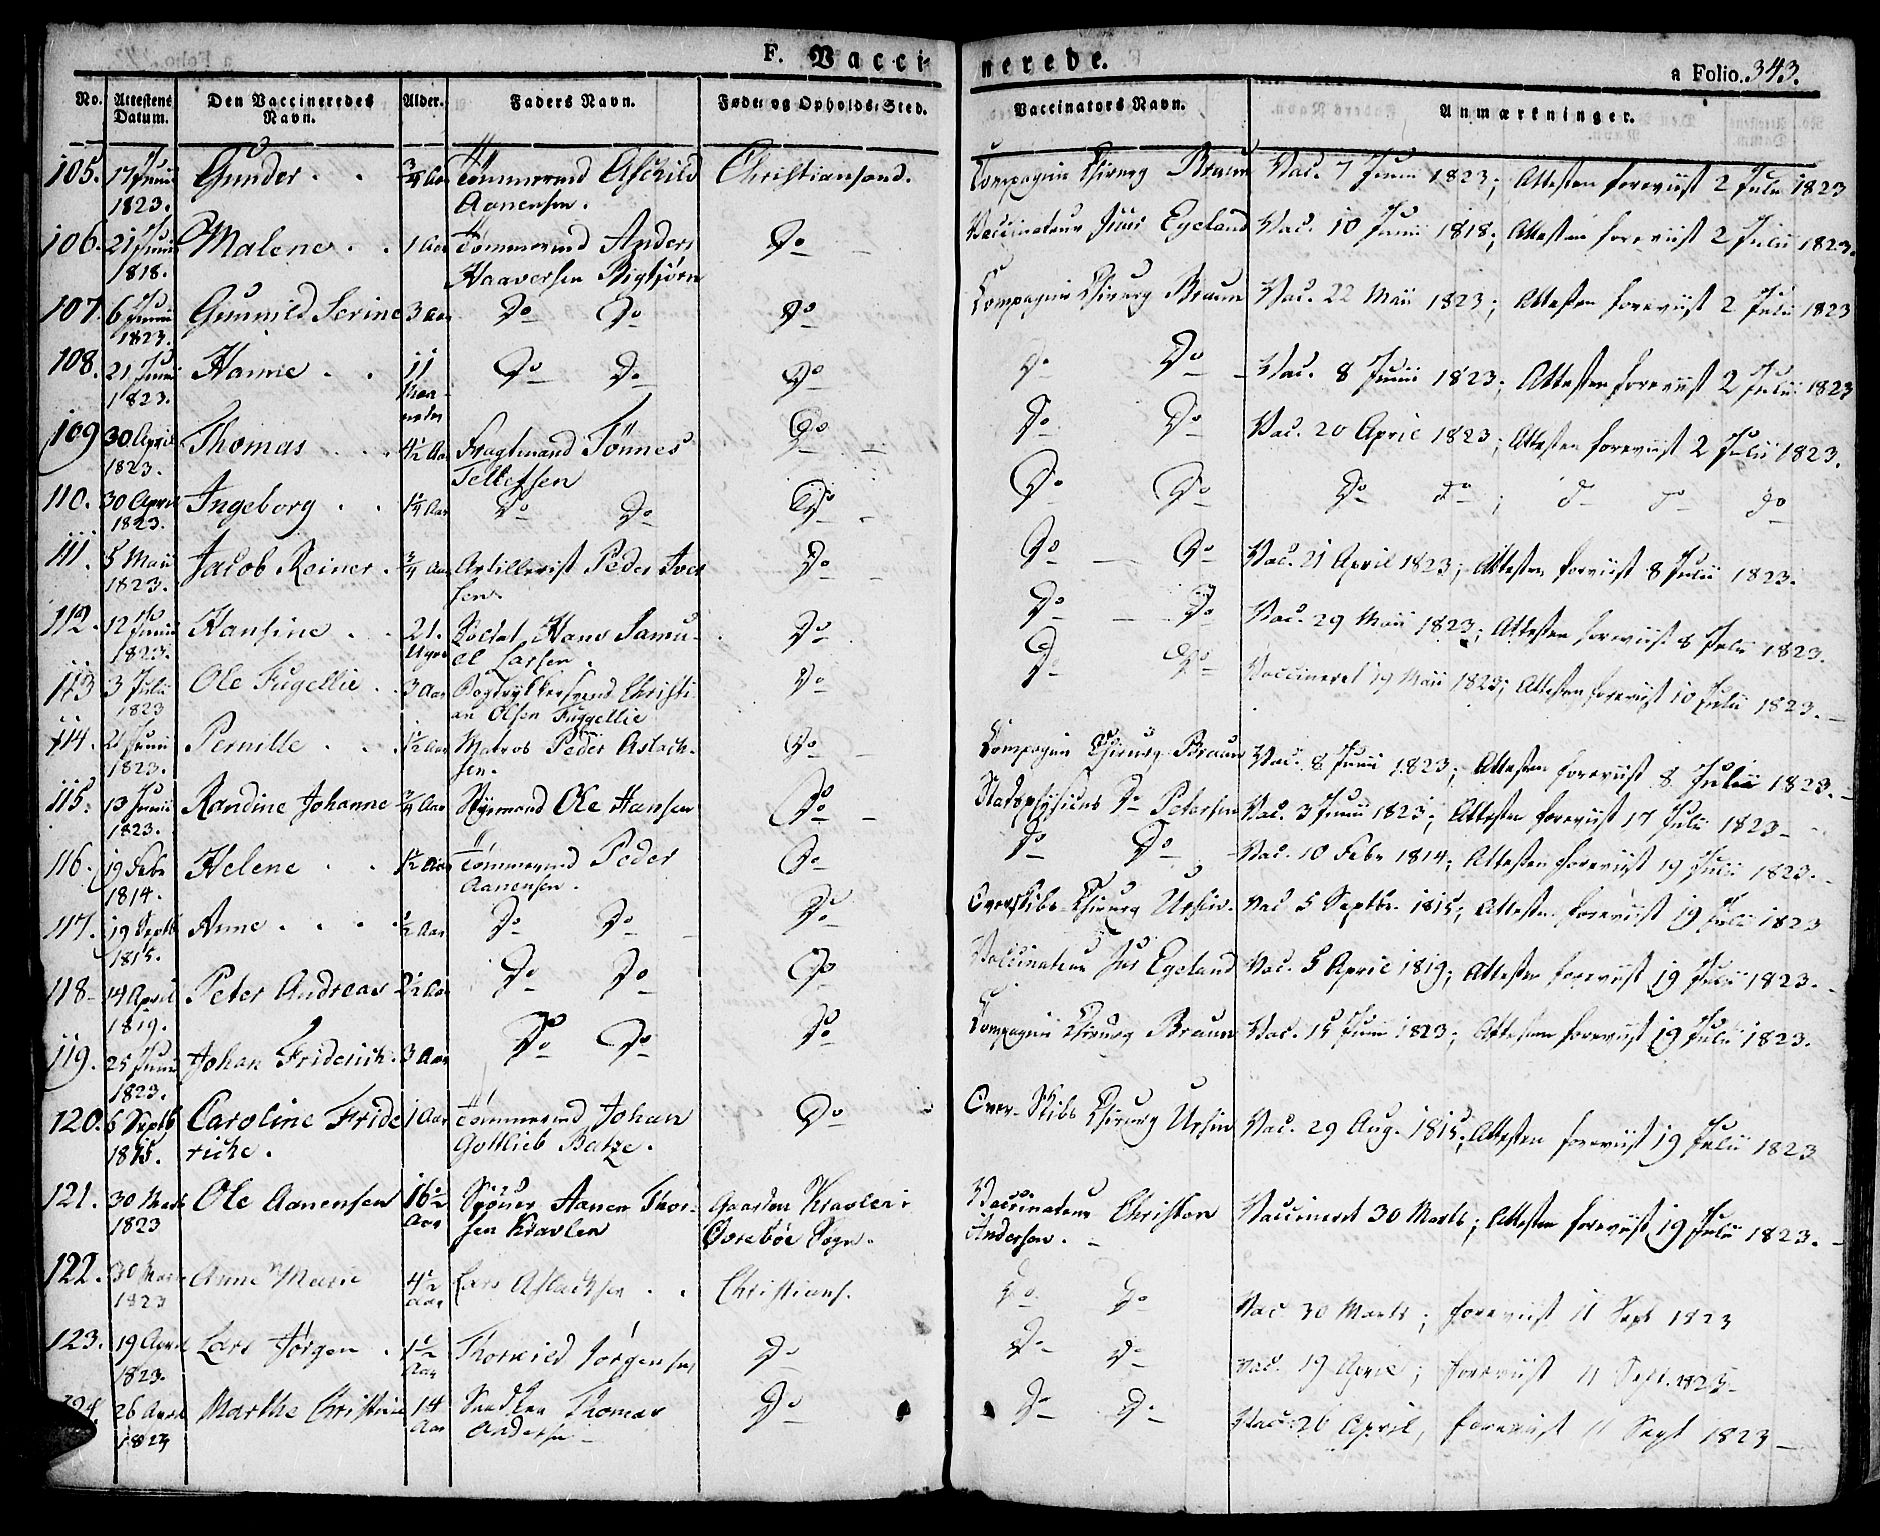 F. Vaccinerede. a Folio. 343.
No. | Attestens Datum. | Den Vaccineredes Navn. | Alder. | Faders Navn. | Føde- og Opholds-Sted. | Vaccinators Navn. | Anmærkninger.
105. | 17 Junii 1823. | Gunder | 3/4 Aar | Tömmermd Aschild Aanensen. | Christiansand. | Compagnie Chirurg Braun | Vac. 7 Junii 1823; Attesten foreviist 2 Julii 1823
106. | 21 Junii 1818. | Malene | 1 Aar | Tömmermd Anders Haaversen Bigtjörn | Do | Vaccinateur Juus Egeland | Vac. 10 Junii 1818; Attesten foreviist 2 Julii 1823.
107. | 6 Junii 1823. | Gunnild Serine | 3 Aar | Do Do | Do | Compagnie Chirurg Braun | Vac. 22 Maii 1823; Attesten foreviist 2 Julii 1823
108. | 21 Junii 1823. | Hanne | 11 Maaneder | Do Do | Do | Do Do | Vac. 8 Junii 1823; Attesten foreviist 2 Julii 1823
109 | 30 April 1823. | Thomas | 4 1/2 Aar | Fragtmand Tönnes Tellefsen | Do | Do Do | Vac. 20 April 1823; Attesten foreviist 2 Julii 1823.
110. | 30 April 1823. | Ingeborg | 1 1/4 Aar | Do Do | Do | Do Do | Do do; do do do
111. | 5 Maii 1823. | Jacob Reiner | 3/4 Aar | Artillerist Peder Iversen. | Do | Do Do | Vac. 21 April 1823; Attesten foreviist 8 Julii 1823.
112. | 12 Junii 1823. | Hansine | 21. Uger | Soldat Hans Samuel Larsen. | Do | Do Do | Vac. 29 Maii 1823; Attesten foreviist 8 Julii 1823.
113 | 3 Julii 1823 | Ole Fugellie | 3 Aar | Bogtrykkersvend Christian Olsen Fuggellie | Do | Do Do | Vaccineret 19 Maii 1823; Attesten foreviist 10 Julii 1823.
114. | 21 Junii 1823. | Pernille | 1 1/2 Aar | Matros Peder Aslachsen. | Do | Compagnie Chirurg Braun | Vac. 8 Junii 1823; Attesten foreviist 8 Julii 1823.
115. | 13 Junii 1823. | Randine Johanne | 3/4 Aar | Styrmand Ole Hansen | Do | Stadsphysicus Dr Petersen | Vac. 3 Junii 1823; Attesten foreviist 17 Julii 1823
116. | 19 Febr 1814. | Helene | 1 1/2 Aar | Tömmermd Peder Aanensen. | Do | Do Do | Vac. 10 Febr 1814; Attesten foreviist 19 Julii 1823.
117. | 19 Septb 1815. | Anne | 1/2 Aar | Do Do | Do | Overskibs-Chirurg Ursin. | Vac 5 Septbr. 1815; Attesten foreviist 19 Julii 1823
118 | 14 April 1819. | Peter Andreas | 2 1/2 Aar | Do Do | Do | Vaccinateur Jus Egeland | Vac. 5 April 1819; Attesten foreviist 19 Julii 1823.
119. | 25 Junii 1823. | Johan Friderich | 3 Aar | Do Do | Do | Compagnie Chirurg Braun | Vac. 15 Junii 1823; Attesten foreviist 19 Julii 1823.
120. | 6 Septb 1815. | Caroline Frideriche. | 1 Aar | Tömmermd Johan Gottlieb Batze. | Do | Over-Skibs Chirurg Ursin | Vac. 29 Aug. 1815; Attesten foreviist 19 Julii 1823
121. | 30 Marts 1823 | Ole Aanensen | 16 1/2 Aar | Aanen Thorsen Kravlen | Gaarden Kravlen i Øvrebøe Sogn. | Vaccinateur Christen Andersen. | Vaccineret 30 Marts; Attesten foreviist 19 Julii 1823.
122. | 30 Marts 1823 | Anne Marie | 4 1/2 Aar | Lars Aslachsen | Christians. | Do Do | Vac 30 Marts; foreviist 11 Sept 1823
123. | 19 April 1823. | Lars Jörgen | 1 1/2 Aar | Thorkild Jörgensen | Do | Do Do | Vac. 19 April; foreviist 11 Sept. 1823.
124. | 26 April 1823 | Marthe Christine | 14 Aar | Thomas Andersen | Do | Do Do | Vac. 26 April, foreviist 11 Sept 1823